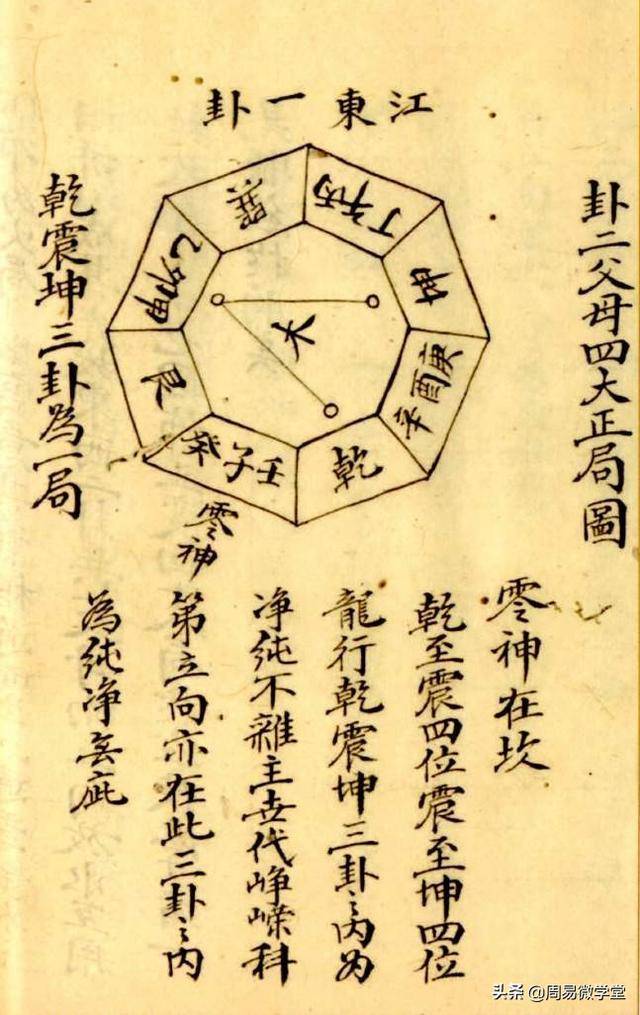 卦二父母四大正局圖
江東一卦
巽
丙午丁
坤
庚酉辛
乾
壬子癸
艮
甲卯乙
零神
乾震坤三卦為一局
零神在坎
乾至震四位震至坤四位
龍行乾震坤三卦之内為
净純不雜主世代崢嶸科
第立向亦在此三卦之内
為純净無疵
头条 @周易微学堂